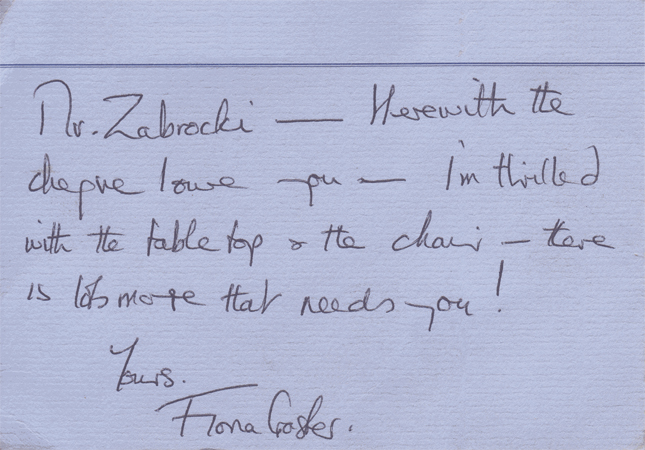 Mr. Zabrocki — Herewith the
cheque I owe you — I'm thrilled
with the table top & the chair — there
is lots more that needs you!
Yours.
Fiona